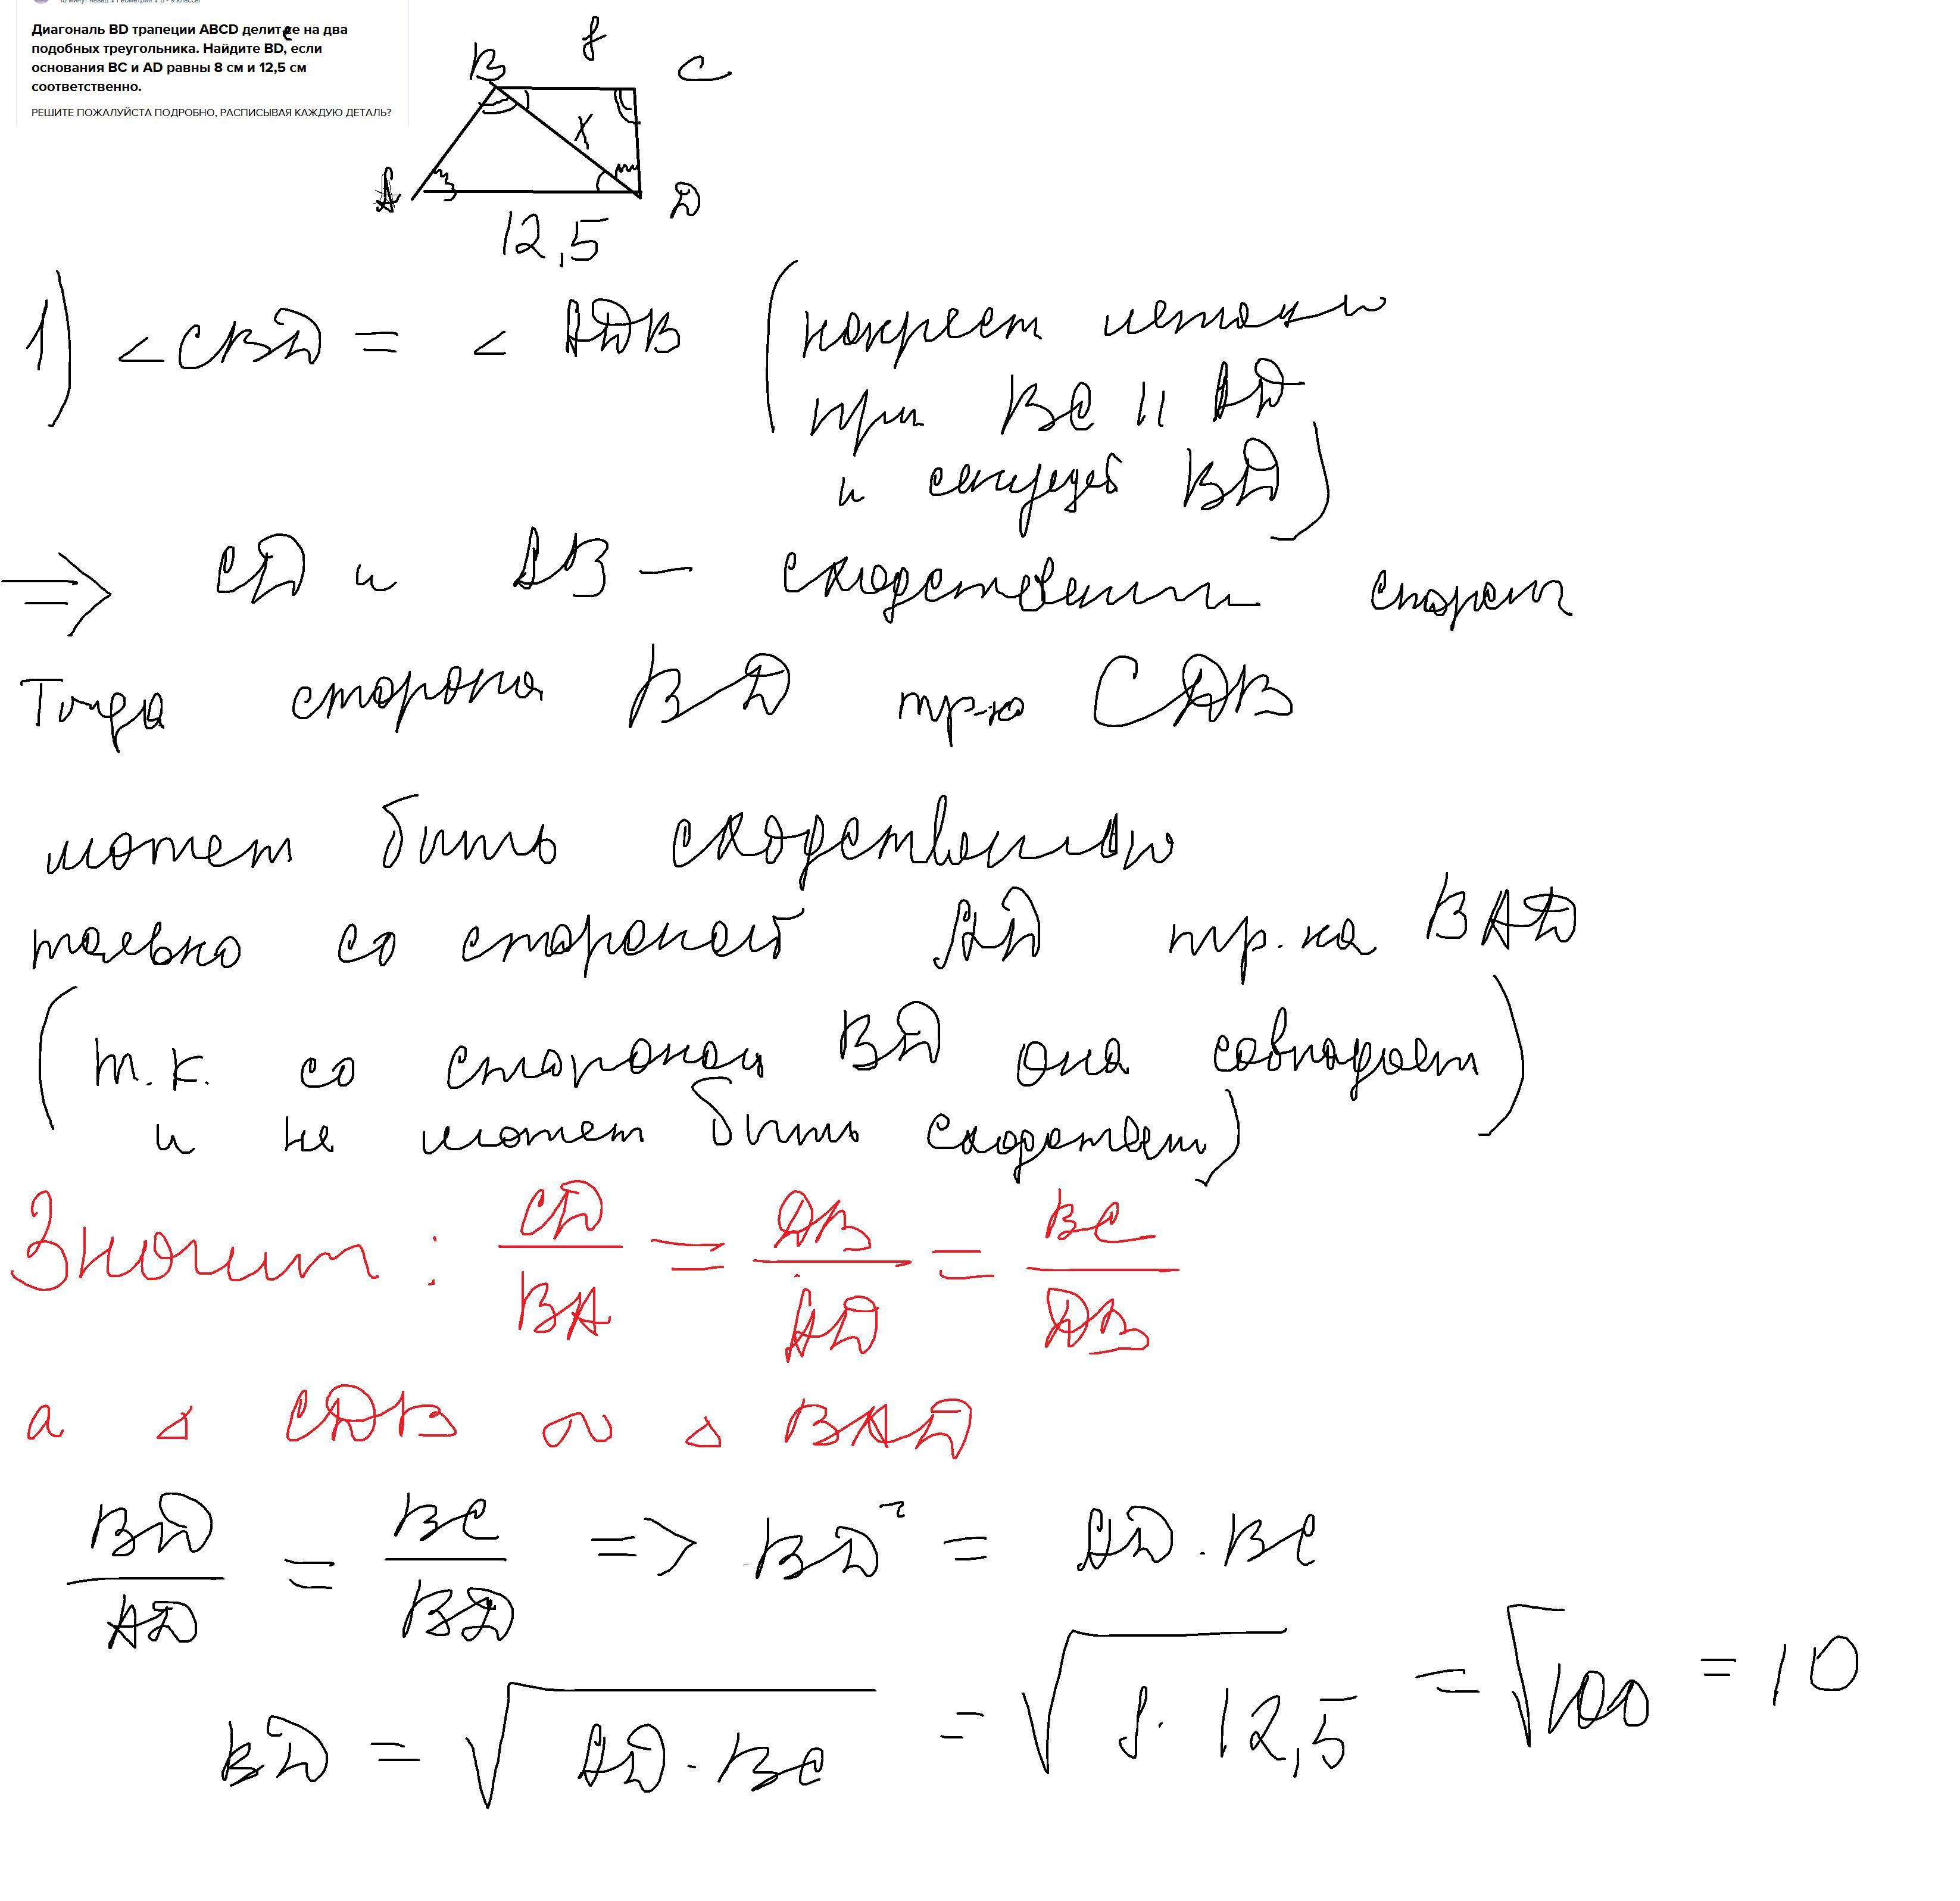 Диагональ BD трапеции ABCD делит ее на два
подобных треугольника. Найдите BD, если
основания BC и AD равны 8 см и 12,5 см
соответственно.
РЕШИТЕ ПОЖАЛУЙСТА ПОДРОБНО, РАСПИСЫВАЯ КАЖДУЮ ДЕТАЛЬ?
B 8 C
X
A D
12,5
1) <CBD = <ADB (накрест лежащи
при BC || AD
и секущей BD)
=> CD и AB — сходственны сторон
Тогда сторона BD тр-ка CDB
может быть сходственной
только со стороной AD тр-ка BAD
(т.к. со стороной BD она совпадает
и не может быть сходствен)
Значит: CD/BA = DB/AD = BC/DB
а △ CDB ∾ △ BAD
BD/AD = BC/BD => BD² = AD·BC
BD = √AD·BC = √8·12,5 = √100 = 10